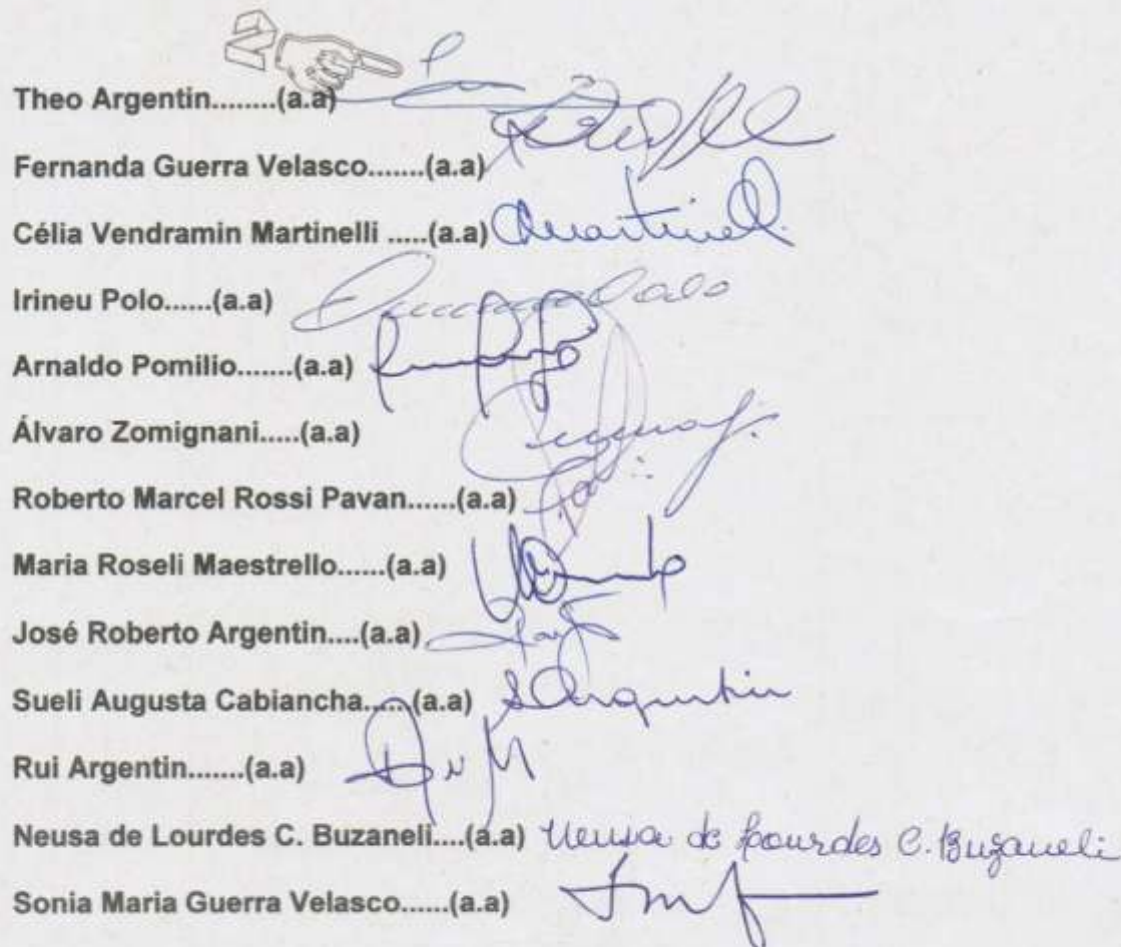 2
Theo Argentin........(a.a)
Fernanda Guerra Velasco.......(a.a)
Célia Vendramin Martinelli .....(a.a) CMartinelli
Irineu Polo......(a.a)
Arnaldo Pomilio.......(a.a)
Álvaro Zomignani.....(a.a)
Roberto Marcel Rossi Pavan......(a.a)
Maria Roseli Maestrello......(a.a)
José Roberto Argentin....(a.a)
Sueli Augusta Cabiancha.....(a.a) SArgentin
Rui Argentin.......(a.a)
Neusa de Lourdes C. Buzaneli....(a.a) Neusa de Lourdes C. Buzaneli
Sonia Maria Guerra Velasco......(a.a)